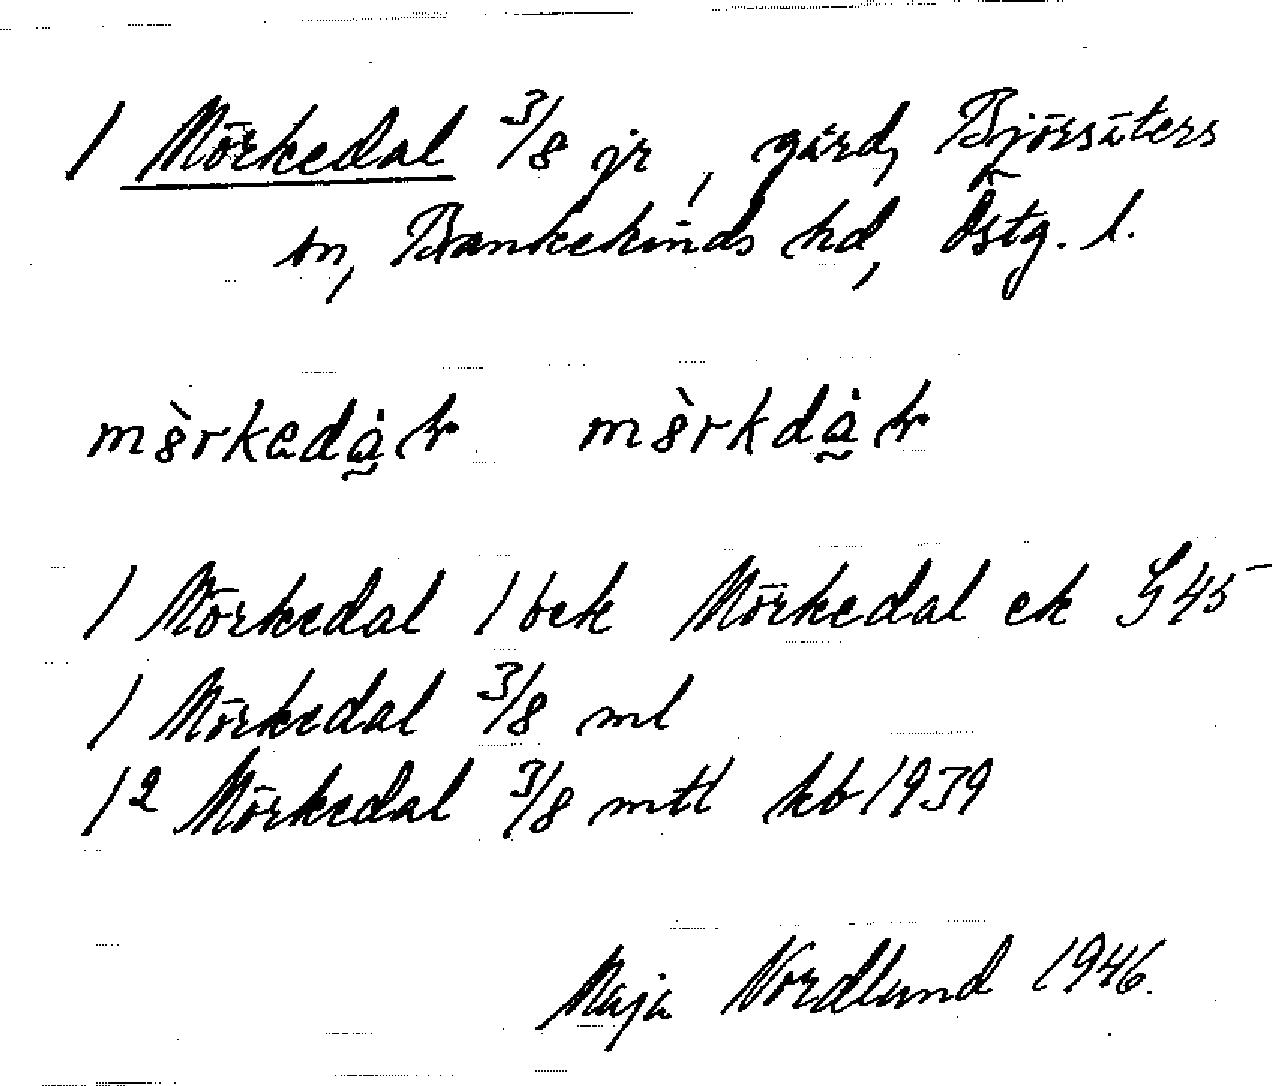 1 Mörkedal 3/8 jr, gård, Björsäters
sn, Bankekinds hd, Östg. l.
1 Mörkedal 1 bek Mörkedal ek G 45
1 Mörkedal 3/8 ml
1² Mörkedal 3/8 mtl kb 1939
Maja Nordlund 1946.